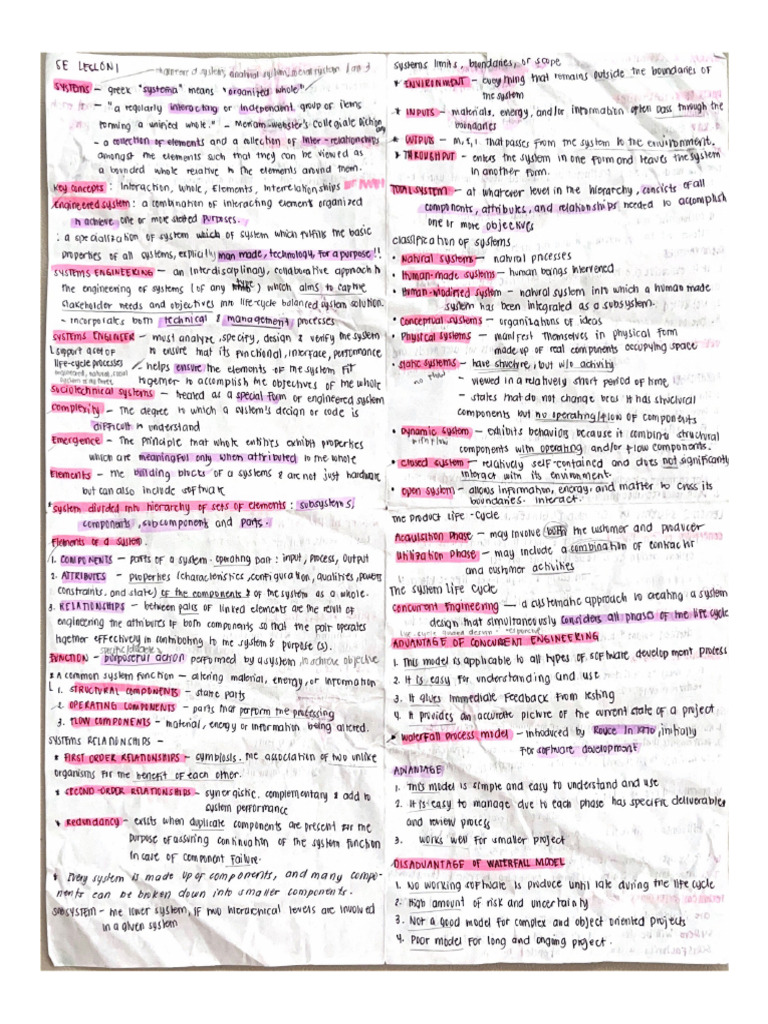 SE LESSON 1
engineered system, natural system, social system
SYSTEMS – greek "systema" means "organized whole"
– "a regularly interacting or independent group of items
forming a unified whole." – Merriam-Webster's Collegiate Diction
ary
– a collection of elements and a collection of inter-relationships
amongst the elements such that they can be viewed as
a bounded whole relative to the elements around them.
Key concepts : Interaction, Whole, Elements, Interrelationships
Engineered system : a combination of interacting elements organized
to achieve one or more stated purposes.
: a specialization of system which of system which fulfills the basic
properties of all systems, explicitly man made, technology, for a purpose!!
SYSTEMS ENGINEERING – an interdisciplinary, collaborative approach to
the engineering of systems (of any type) which aims to capture
stakeholder needs and objectives into life-cycle balanced system solution.
– incorporates both technical & management processes
SYSTEMS ENGINEER – must analyze, specify, design & verify the system
support a set of to ensure that its functional, interface, performance
life-cycle processes / helps ensure the elements of the system fit
together to accomplish the objectives of the whole
Sociotechnical systems – treated as a special form or engineered system
Complexity – The degree to which a system's design or code is
difficult to understand
Emergence – The principle that whole entities exhibit properties
which are meaningful only when attributed to the whole
Elements – the building blocks of a systems & are not just hardware
but can also include software
* System divided into hierarchy of sets of elements : subsystems,
components, subcomponent and parts.
Elements of a system.
1. COMPONENTS – parts of a system. operating part : input, process, output
2. ATTRIBUTES – properties (characteristics, configuration, qualities, powers
constraints, and state) of the components & of the system as a whole.
3. RELATIONSHIPS – between pairs of linked elements are the result of
engineering the attributes of both components so that the pair operates
together effectively in contributing to the system's purpose (s).
FUNCTION – purposeful action performed by a system to achieve objective
* A common system function – altering material, energy, or information
1. STRUCTURAL COMPONENTS – static parts
2. OPERATING COMPONENTS – parts that perform the processing
3. FLOW COMPONENTS – material, energy or information being altered.
SYSTEMS RELATIONSHIPS –
* FIRST ORDER RELATIONSHIPS – symbiosis. the association of two unlike
organisms for the benefit of each other.
* SECOND ORDER RELATIONSHIPS – synergistic. complementary & add to
system performance
* Redundancy – exists when duplicate components are present for the
purpose of assuring continuation of the system function
in case of component failure.
* Every system is made up of components, and many compo-
nents can be broken down into smaller components.
SUBSYSTEM – the lower system, if two hierarchical levels are involved
in a given system
systems limits, boundaries, or scope
* ENVIRONMENT – everything that remains outside the boundaries of
the system
* INPUTS – materials, energy, and/or information often pass through the
boundaries
* OUTPUTS – M, E, I that passes from the system to the environment.
* THROUGHPUT – enters the system in one form and leaves the system
in another form.
TOTAL SYSTEM – at whatever level in the hierarchy, consists of all
components, attributes, and relationships needed to accomplish
one or more objectives
Classification of systems
• Natural systems – natural processes
• Human-made systems – human beings intervened
• Human-modified system – natural system into which a human made
system has been integrated as a subsystem.
• Conceptual systems – organizations of ideas
• Physical systems – manifest themselves in physical form
made up of real components occupying space
• Static systems – have structure, but w/o activity
no flow – viewed in a relatively short period of time
– states that do not change bcos it has structural
components but no operating/flow of components
• Dynamic system – exhibits behavior because it combine structural
with flow components with operating and/or flow components.
• Closed system – relatively self-contained and does not significantly
interact with its environment.
• Open system – allows information, energy, and matter to cross its
boundaries. interact.
The Product Life-Cycle
Acquisition Phase – may involve both the customer and producer
Utilization Phase – may include a combination of contractor
and customer activities
The system life cycle
Concurrent Engineering – a systematic approach to creating a system
design that simultaneously considers all phase of the life cycle
ADVANTAGE OF CONCURENT ENGINEERING
1. This model is applicable to all types of software development process
2. It is easy for understanding and use
3. It gives immediate feedback from testing
4. It provides an accurate picture of the current state of a project
* Waterfall process model – introduced by Royce in 1970, initially
for software development
ADVANTAGE
1. This model is simple and easy to understand and use
2. It is easy to manage due to each phase has specific deliverables
and review process
3. works well for smaller project
DISADVANTAGE OF WATERFALL MODEL
1. No working software is produce until late during the life cycle
2. High amount of risk and uncertainty
3. Not a good model for complex and object oriented projects
4. Poor model for long and ongoing project.